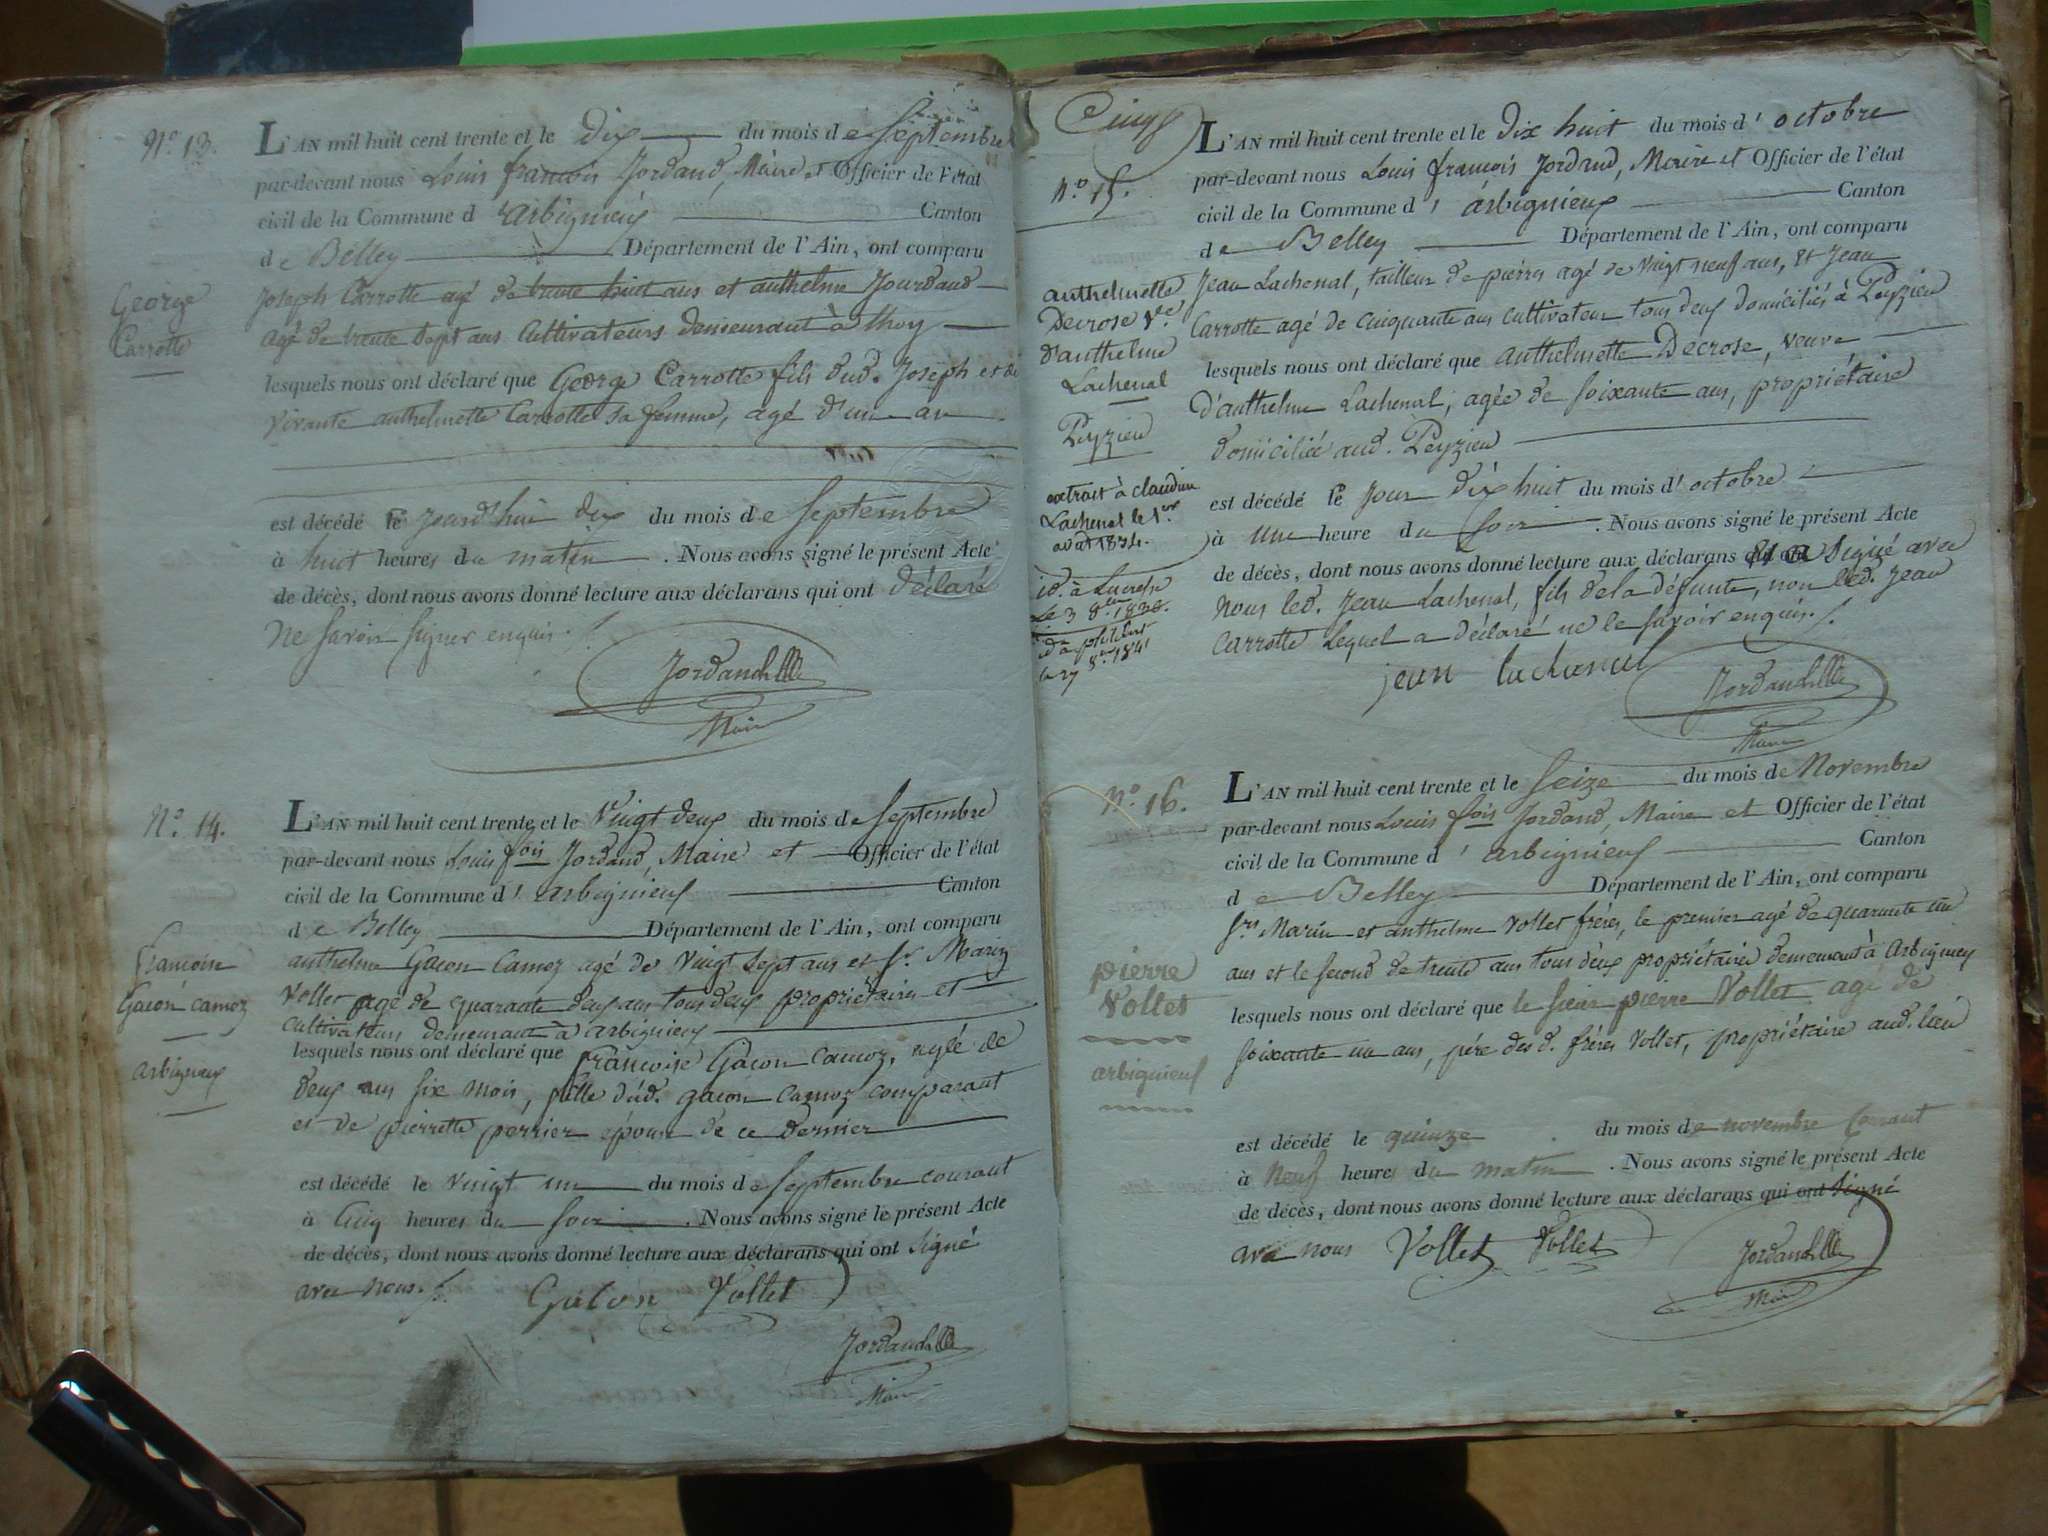 N.o 13.
L'AN mil huit cent trente et le Dix du mois de Septembre
par-devant nous Louis françois Jordand, Maire et Officier de l'état
civil de la Commune d'Arbignieux Canton
de Belley Département de l'Ain, ont comparu
George
Carrotte
Joseph Carrotte agé de trente huit ans et anthelme Jourdand
agé de trente sept ans Cultivateurs demeurant à thoy
lesquels nous ont déclaré que George Carrotte fils dud. Joseph et de
vivante anthelmette Carrotte sa femme, agé d'un an
est décédé le jourd'hui dix du mois de Septembre
à huit heures du matin . Nous avons signé le présent Acte
de décès, dont nous avons donné lecture aux déclarans qui ont déclaré
ne savoir signer enquis.
Jordand
Maire
N.o 14.
L'AN mil huit cent trente et le Vingt deux du mois de Septembre
par-devant nous Louis fois Jordand, Maire et Officier de l'état
civil de la Commune d'arbignieux Canton
de Belley Département de l'Ain, ont comparu
francoise
Gacon camoz
arbignieux
anthelme Gacon Camoz agé de Vingt Sept ans et fs. Marin
Vollet agé de quarante deux ans tous deux propriétaires et
cultivateurs demeurant à arbignieux
lesquels nous ont déclaré que francoise Gacon camoz, agée de
deux ans six mois, fille dud. gacon camoz comparant
et de pierrette perrier épouse de ce dernier
est décédé le vingt un du mois de Septembre courant
à Cinq heures du soir . Nous avons signé le présent Acte
de décès, dont nous avons donné lecture aux déclarans qui ont signé
avec nous.
Gacon Vollet
Jordand
Maire
N.o 15.
L'AN mil huit cent trente et le Dix huit du mois d'octobre
par-devant nous Louis françois Jordand, Maire et Officier de l'état
civil de la Commune d'arbignieux Canton
de Belley Département de l'Ain, ont comparu
anthelmette
Decrose Ve.
d'anthelme
Lachenal
Peyzieu
extrait à claudine
Lachenal le 1er
avat 1834.
Jean Lachenal, tailleur de pierres agé de vingt neuf ans, et Jean
Carrotte agé de cinquante ans cultivateur tous deux domiciliés à Peyzieu
lesquels nous ont déclaré que anthelmette Decrose, veuve
d'anthelme Lachenal, agée de soixante ans, propriétaire
domiciliée aud. Peyzieu
est décédé le jour dix huit du mois d'octobre
à une heure du soir . Nous avons signé le présent Acte
de décès, dont nous avons donné lecture aux déclarans et a signé avec
nous led. Jean Lachenal, fils de la défunte, non led. Jean
Carrotte lequel a déclaré ne le savoir enquis.
jean lachenal
Jordand
Maire
N.o 16.
L'AN mil huit cent trente et le seize du mois de Novembre
par-devant nous Louis fois Jordand, Maire et Officier de l'état
civil de la Commune d'arbignieux Canton
de Belley Département de l'Ain, ont comparu
pierre
Vollet
arbignieux
fs. Marin et anthelme Vollet frères, le premier agé de quarante un
ans et le second de trente ans tous deux propriétaires demeurant à Arbignieux
lesquels nous ont déclaré que le sieur pierre Vollet agé de
soixante un ans, père des d. frères Vollet, propriétaire aud. lieu
est décédé le quinze du mois de novembre Courant
à neuf heures du matin . Nous avons signé le présent Acte
de décès, dont nous avons donné lecture aux déclarans qui ont signé
avec nous Vollet Vollet
Jordand
Maire